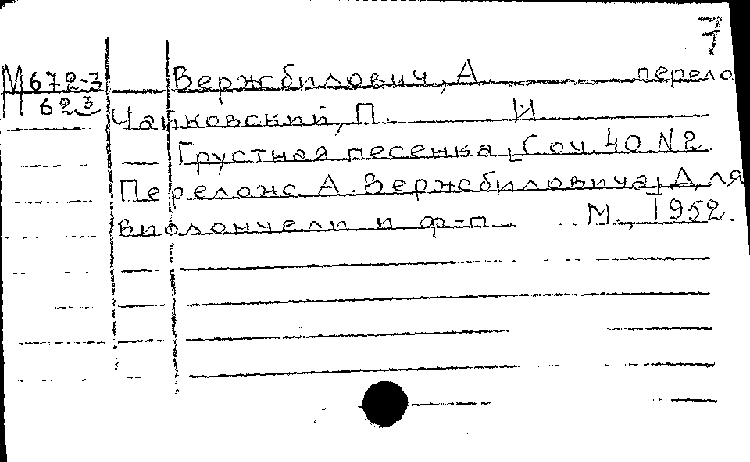 7
1
М 672-3 Вержбилович, А перело
623 Чайковский, П. И
Грустная песенка, Соч. 40 N2
Перелож А. Вержбиловича, Для
виолончели и ф-п М., 1952.